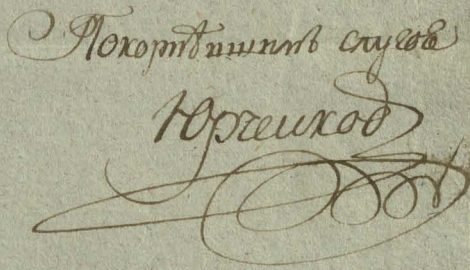 Покорнѣишимъ слугою
Юрченков